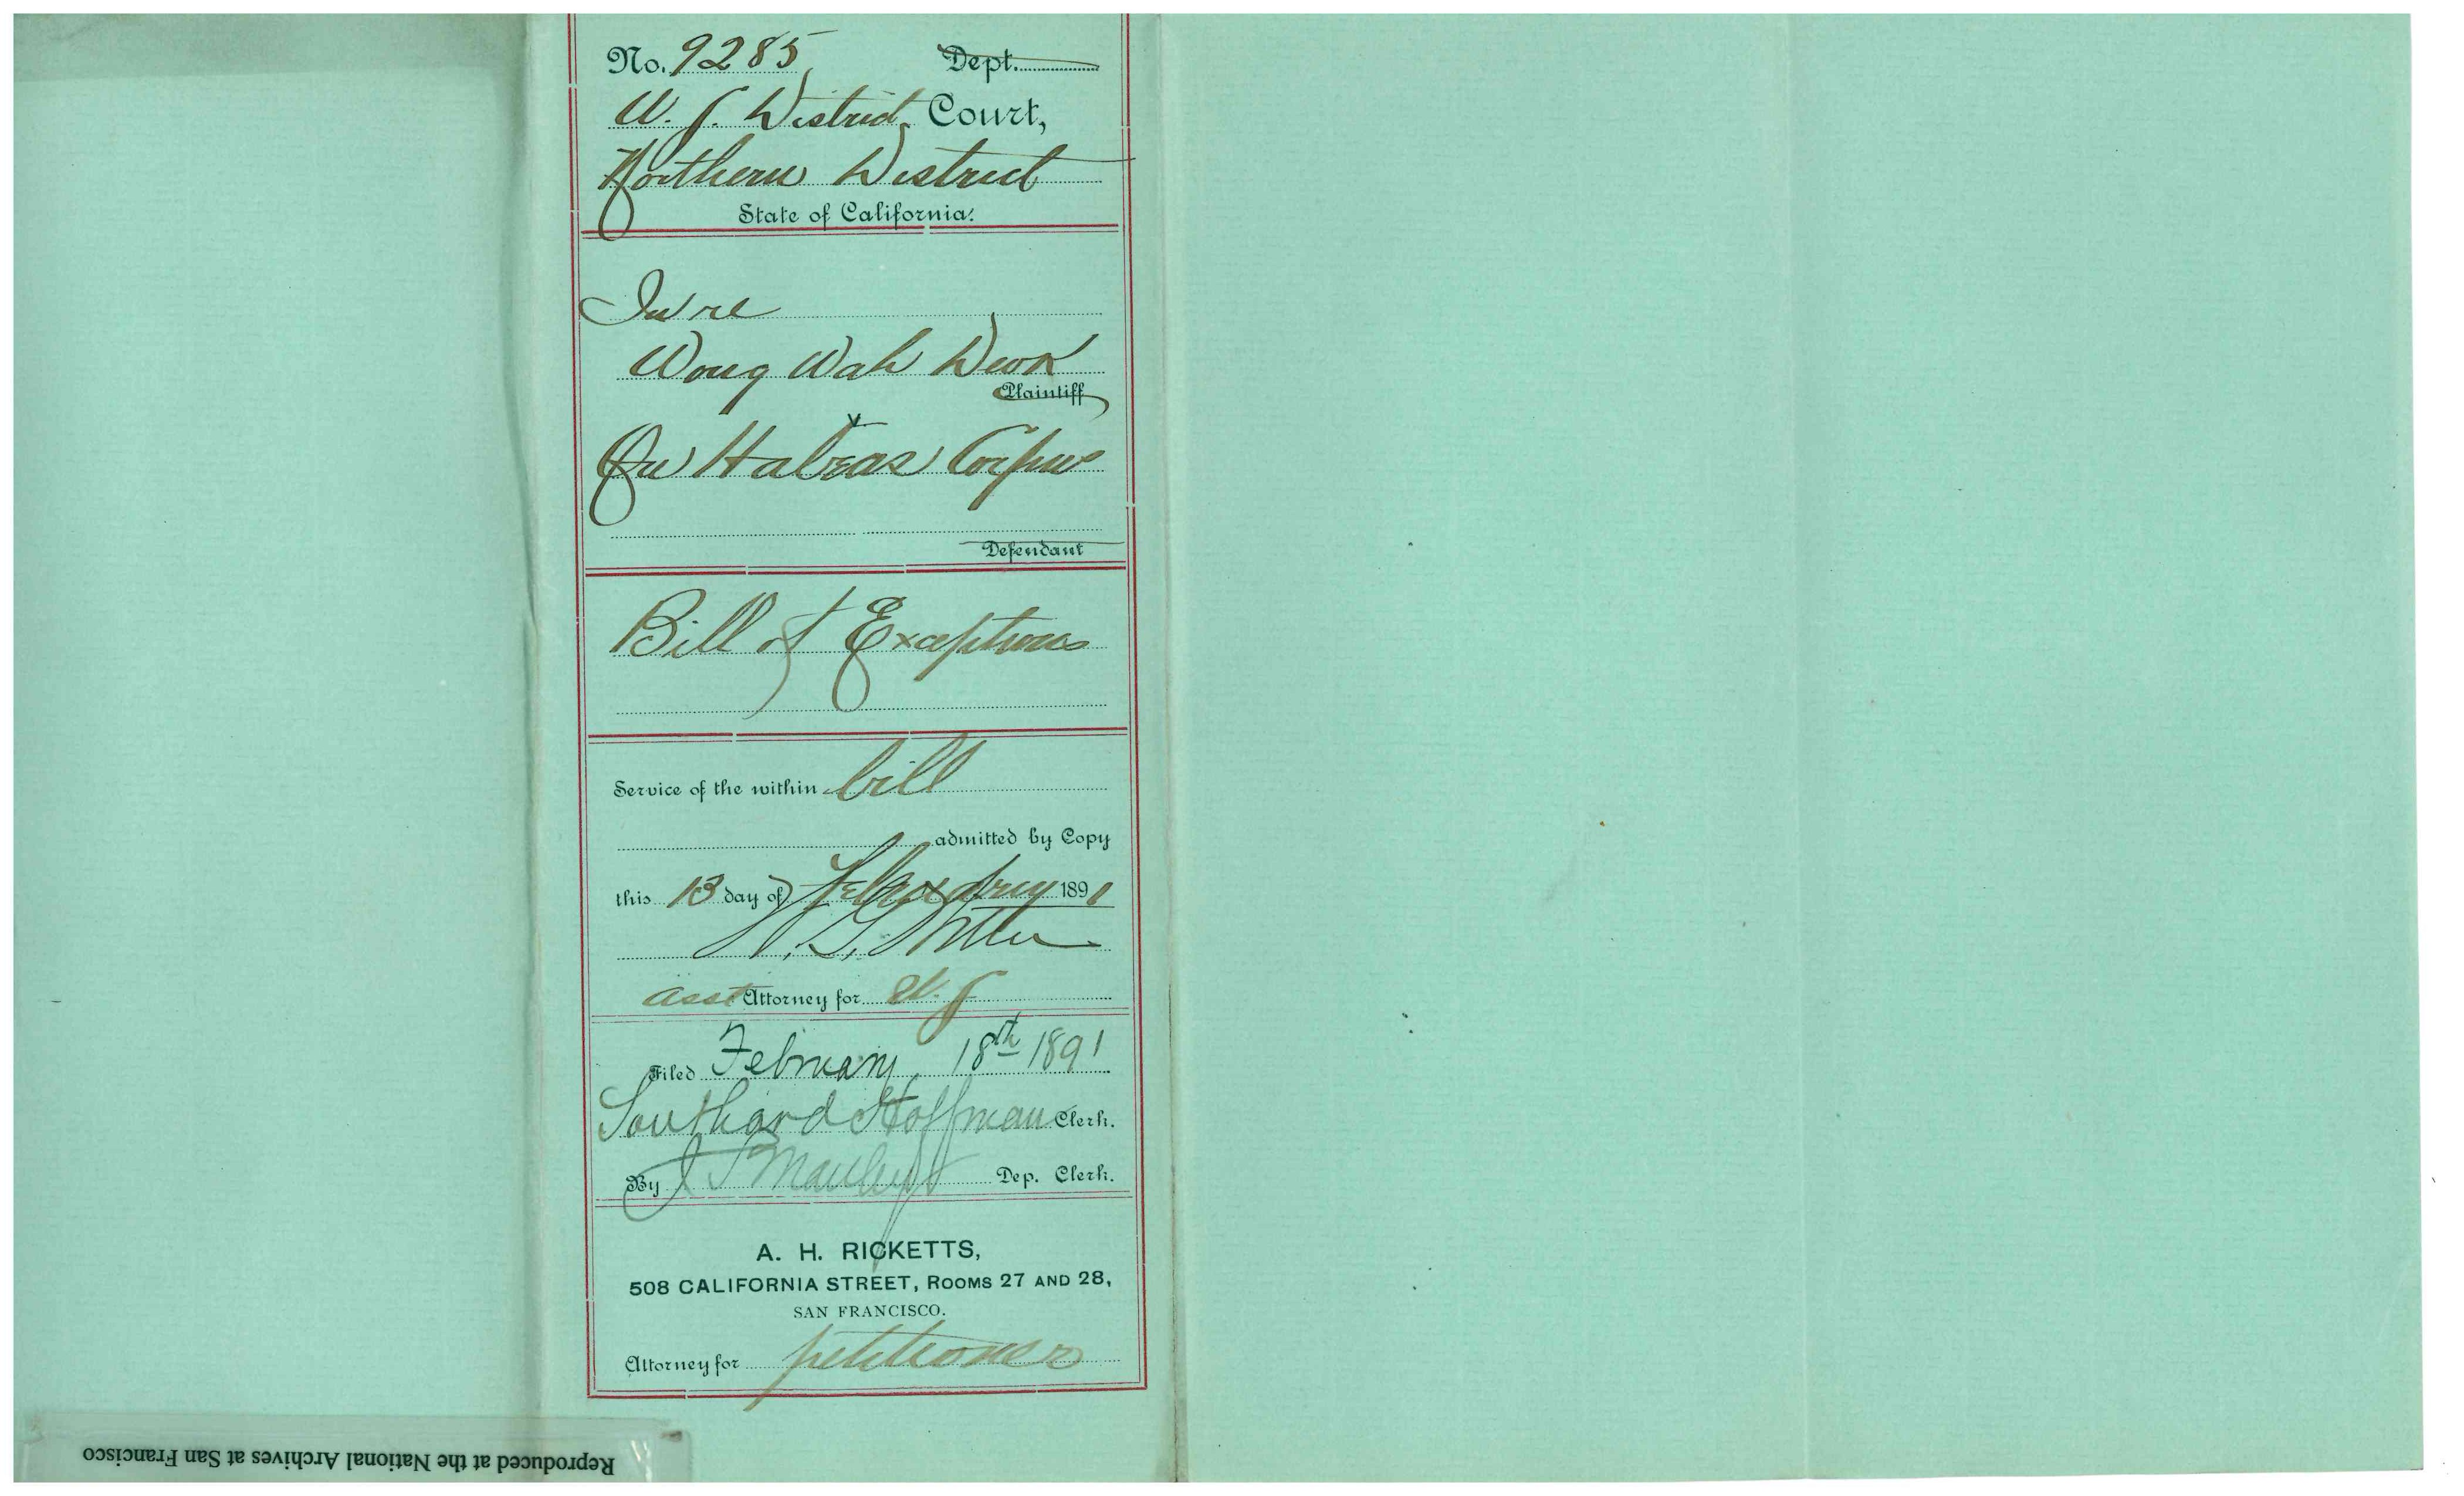 No. 9285 Dept.
U.S. District Court,
Northern District
State of California.
In re
Wong Wah
Plaintiff
v
On Habeas Corpus
Defendant
Bill of Exceptions
Service of the within bill
admitted by Copy
this 13 day of February 1891
Asst Attorney for U.S.
Filed February 18th 1891
Southard Hoffman Clerk.
By Dep. Clerk.
A. H. RICKETTS,
508 CALIFORNIA STREET, ROOMS 27 AND 28,
SAN FRANCISCO.
Attorney for petitioner
Reproduced at the National Archives at San Francisco